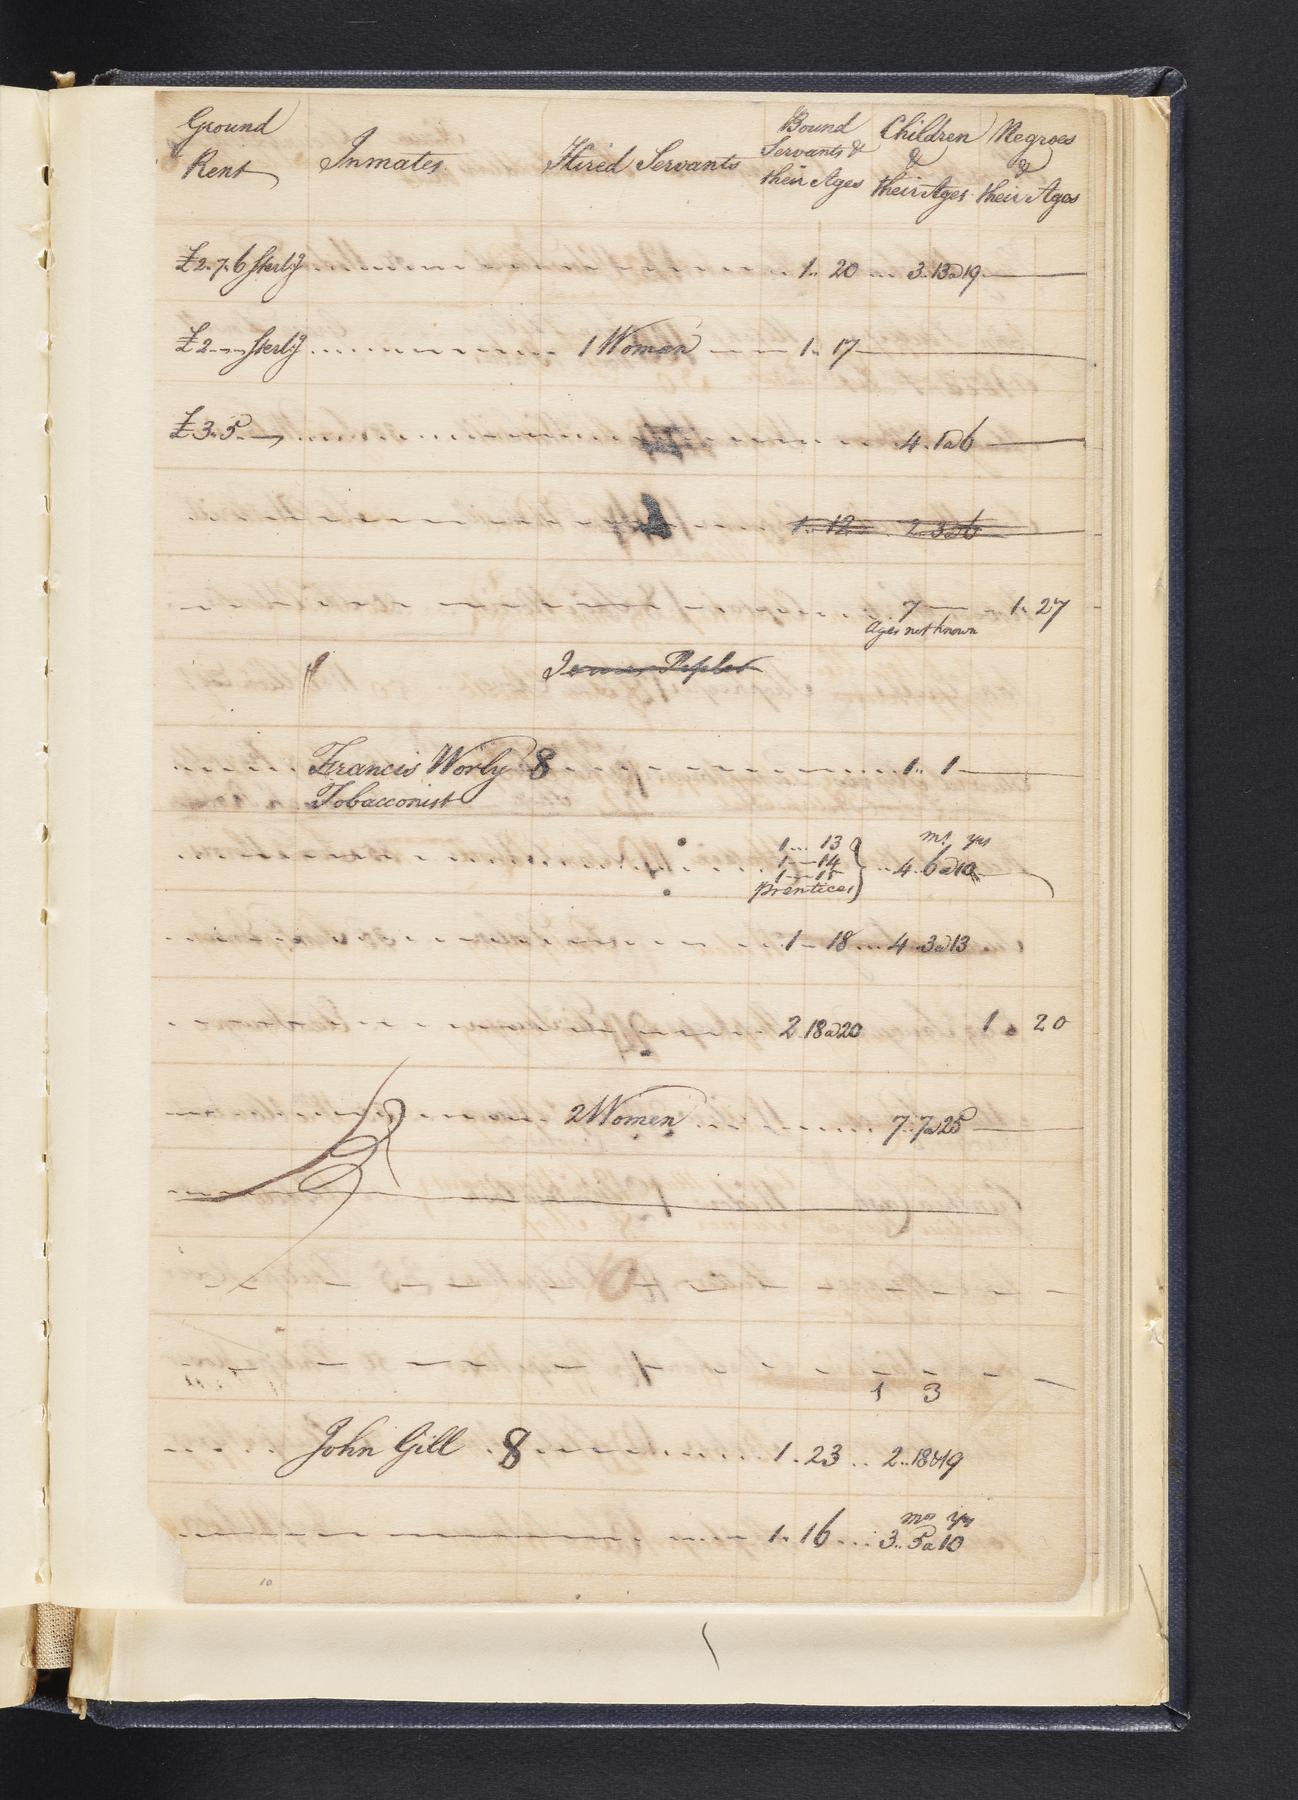 Ground Rent
Inmates
Hired Servants
Bound Servants & their Ages
Children & their Ages
Negroes & their Ages
£2.7.6 Sterlg 1.. 20 ... 3. 13 a 19
£2 Sterlg 1 Woman 1.. 17
£3.5 4. 1 a 6
1.. 12 2.. 3 a 6
7 1. 27
Ages not known
Francis Worly 8 1.. 1
Tobacconist
ms yrs
1 ... 13
1 — 14 4. 6 a 10
1 — 15
Prentices
1 — 18 ... 4 3 a 13
2. 18 a 20 1 20
2 Women 7.. 7 a 25
1 3
John Gill 8 1. 23 .. 2.. 18 & 19
mos yrs
1. 16 ... 3.. 5 a 10
10